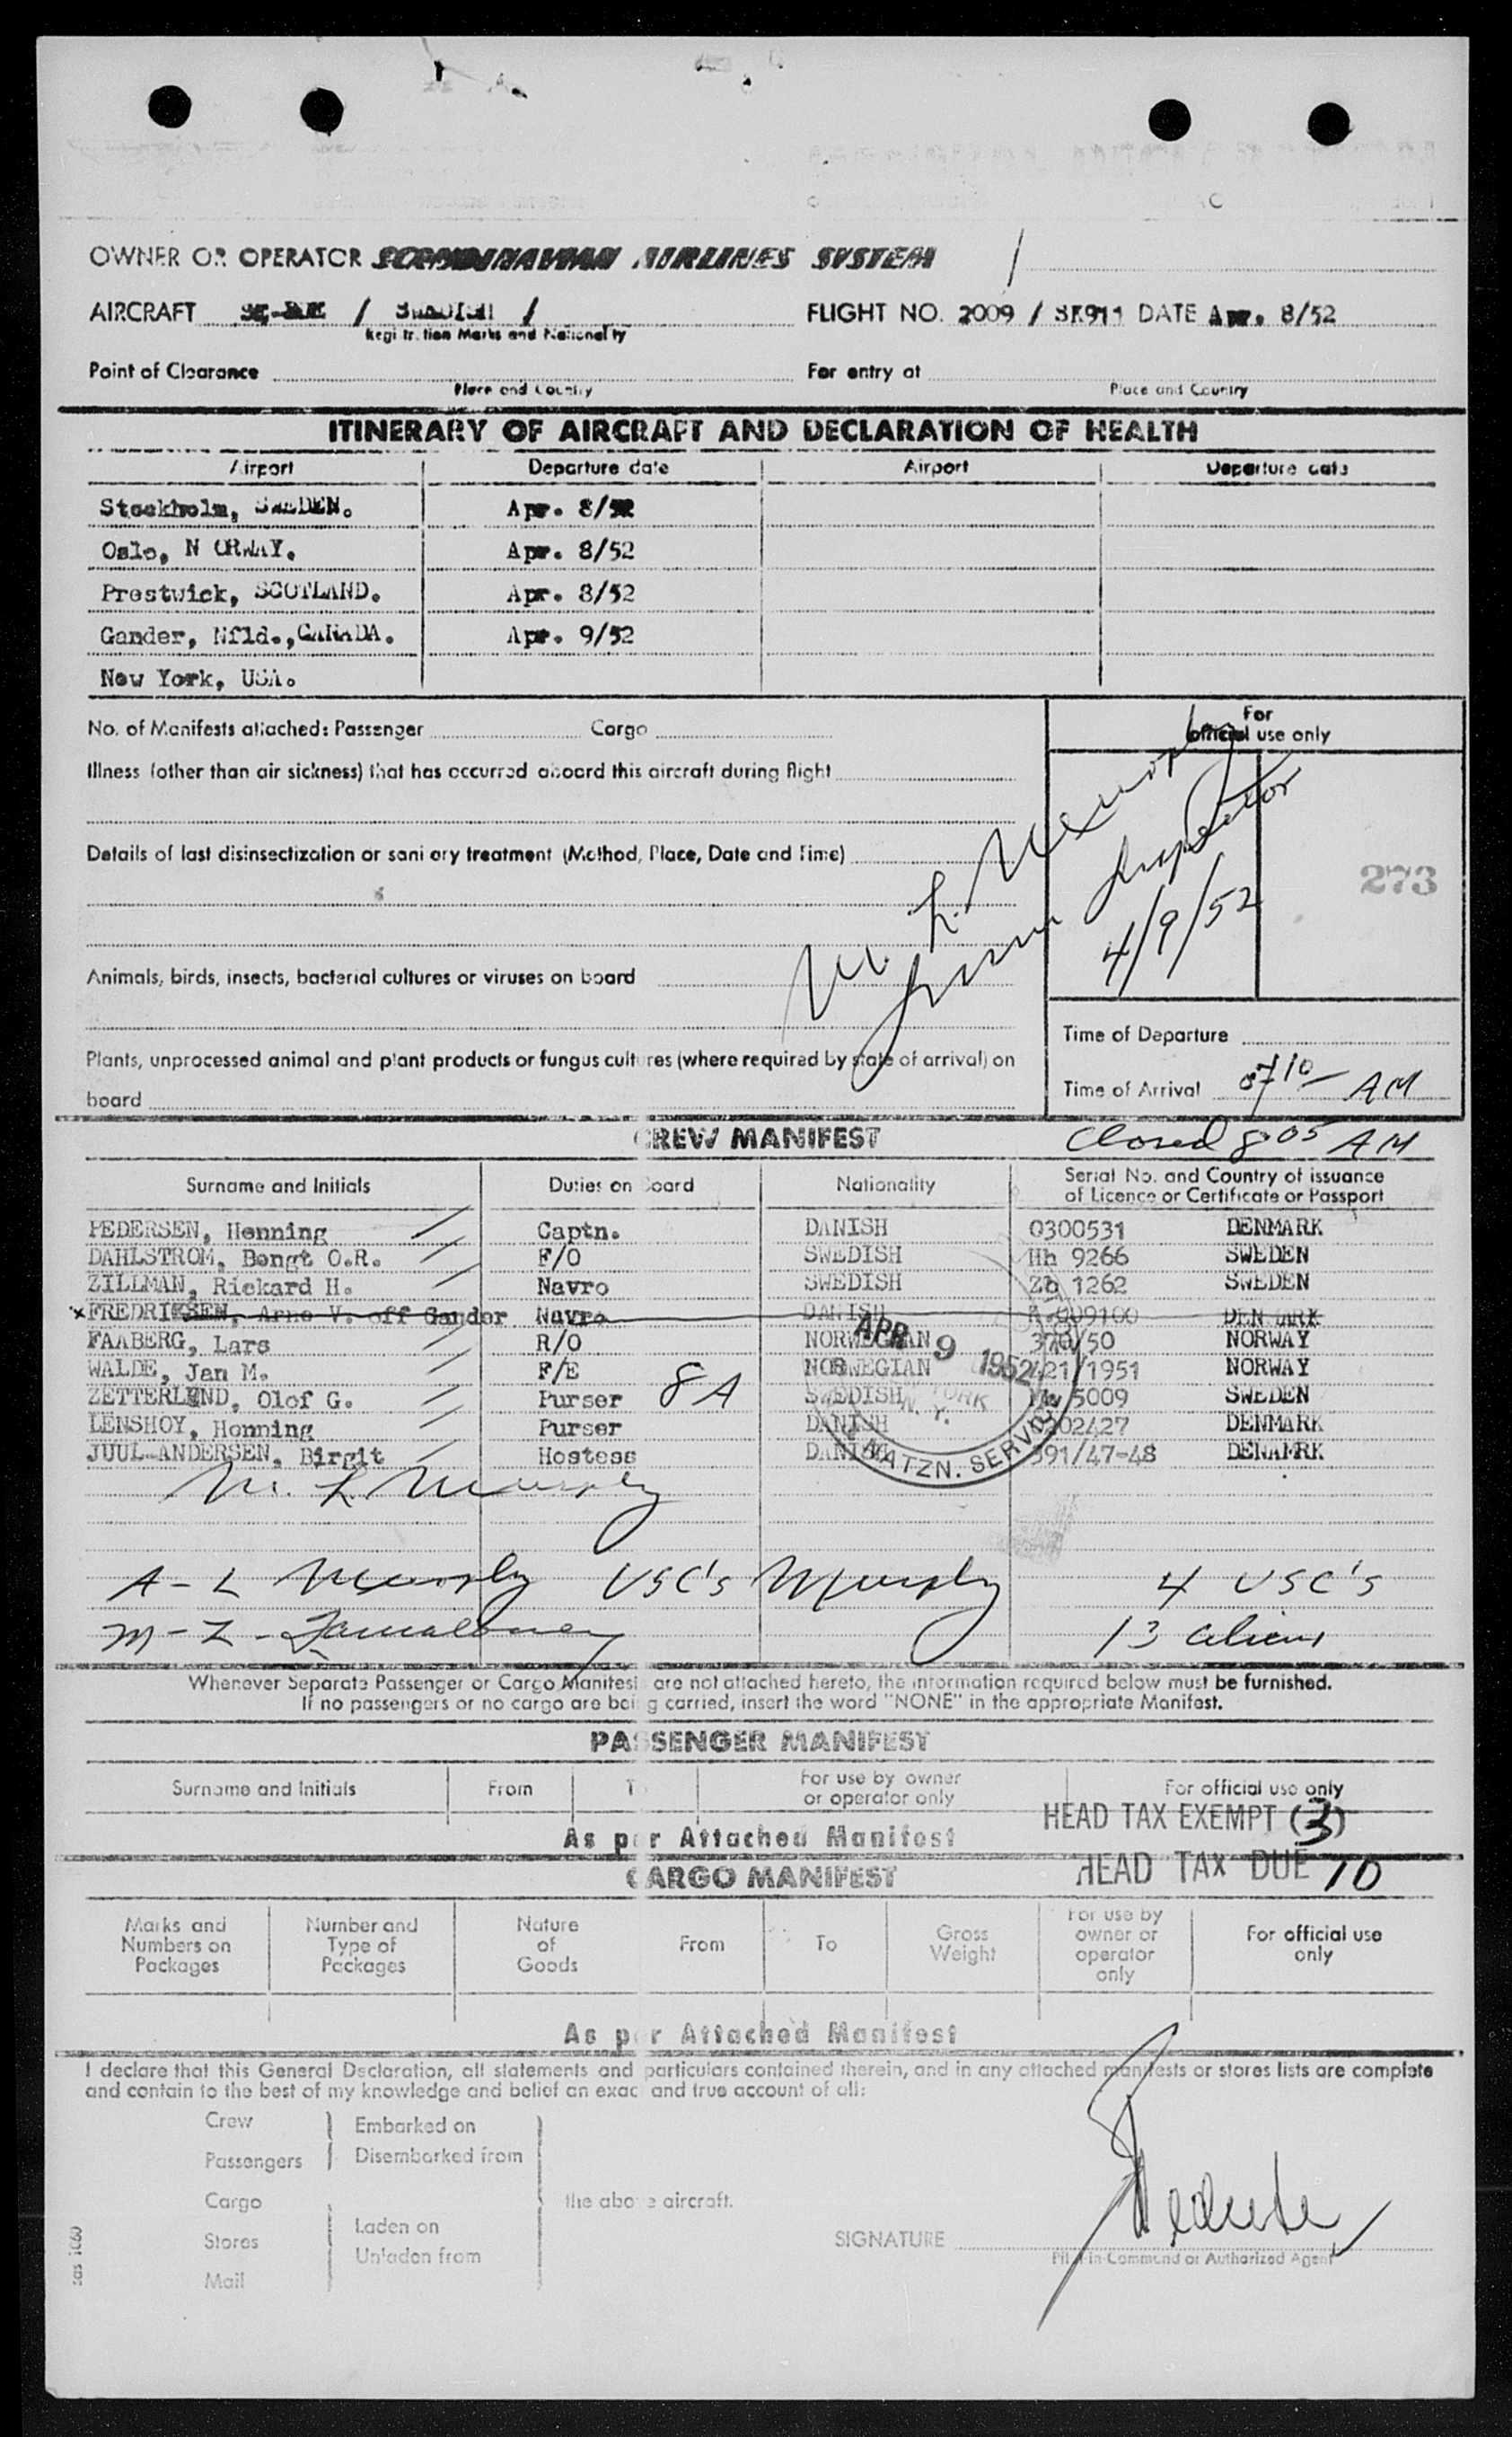 OWNER OR OPERATOR SCANDINAVIAN AIRLINES SYSTEM
AIRCRAFT / SWEDISH / FLIGHT NO. 2009 / SK911 DATE Apr. 8/52
Registration Marks and Nationality
Point of Clearance For entry at
Place and Country Place and Country
ITINERARY OF AIRCRAFT AND DECLARATION OF HEALTH
Airport Departure date Airport Departure date
Stockholm, SWEDEN. Apr. 8/52
Oslo, N ORWAY. Apr. 8/52
Prestwick, SCOTLAND. Apr. 8/52
Gander, Nfld.,CANADA. Apr. 9/52
New York, USA.
No. of Manifests attached: Passenger Cargo
For official use only
Illness (other than air sickness) that has occurred aboard this aircraft during flight
Details of last disinsectization or sanitary treatment (Method, Place, Date and Time)
273
M. L. Murphy
Immn Inspector
4/9/52
Animals, birds, insects, bacterial cultures or viruses on board
Time of Departure
Plants, unprocessed animal and plant products or fungus cultures (where required by state of arrival) on
board
Time of Arrival 0710 AM
CREW MANIFEST Closed 8:05 AM
Surname and Initials Duties on Board Nationality Serial No. and Country of issuance
of Licence or Certificate or Passport
PEDERSEN, Henning Captn. DANISH 0300531 DENMARK
DAHLSTROM, Bengt O.R. F/O SWEDISH Hh 9266 SWEDEN
ZILLMAN, Rickard H. Navro SWEDISH Zb 1262 SWEDEN
x FREDRIKSEN, Arne V. off Gander Navro DANISH A 009100 DENMARK
FAABERG, Lars R/O NORWEGIAN 370/50 NORWAY
WALDE, Jan M. F/E NORWEGIAN 421/1951 NORWAY
ZETTERLUND, Olof G. Purser 8A SWEDISH 5009 SWEDEN
LENSHOY, Henning Purser DANISH 202427 DENMARK
JUUL-ANDERSEN, Birgit Hostess DANISH 391/47-48 DENAMRK
APR 9 1952
NEW YORK
N. Y.
NATZN. SERVICE
M. L. Murphy
A - L Murphy USC's Murphy 4 USC's
M - Z - 13 aliens
Whenever Separate Passenger or Cargo Manifests are not attached hereto, the information required below must be furnished.
If no passengers or no cargo are being carried, insert the word "NONE" in the appropriate Manifest.
PASSENGER MANIFEST
Surname and Initials From To For use by owner or operator only For official use only
HEAD TAX EXEMPT (3)
As per Attached Manifest
HEAD TAX DUE 10
CARGO MANIFEST
Marks and Numbers on Packages Number and Type of Packages Nature of Goods From To Gross Weight For use by owner or operator only For official use only
As per Attached Manifest
I declare that this General Declaration, all statements and particulars contained therein, and in any attached manifests or stores lists are complete
and contain to the best of my knowledge and belief an exact and true account of all:
Crew Embarked on
Passengers Disembarked from
Cargo the above aircraft.
Stores Laden on
Unladen from
Mail
SIGNATURE
Pilot in Command or Authorized Agent
sas 1060